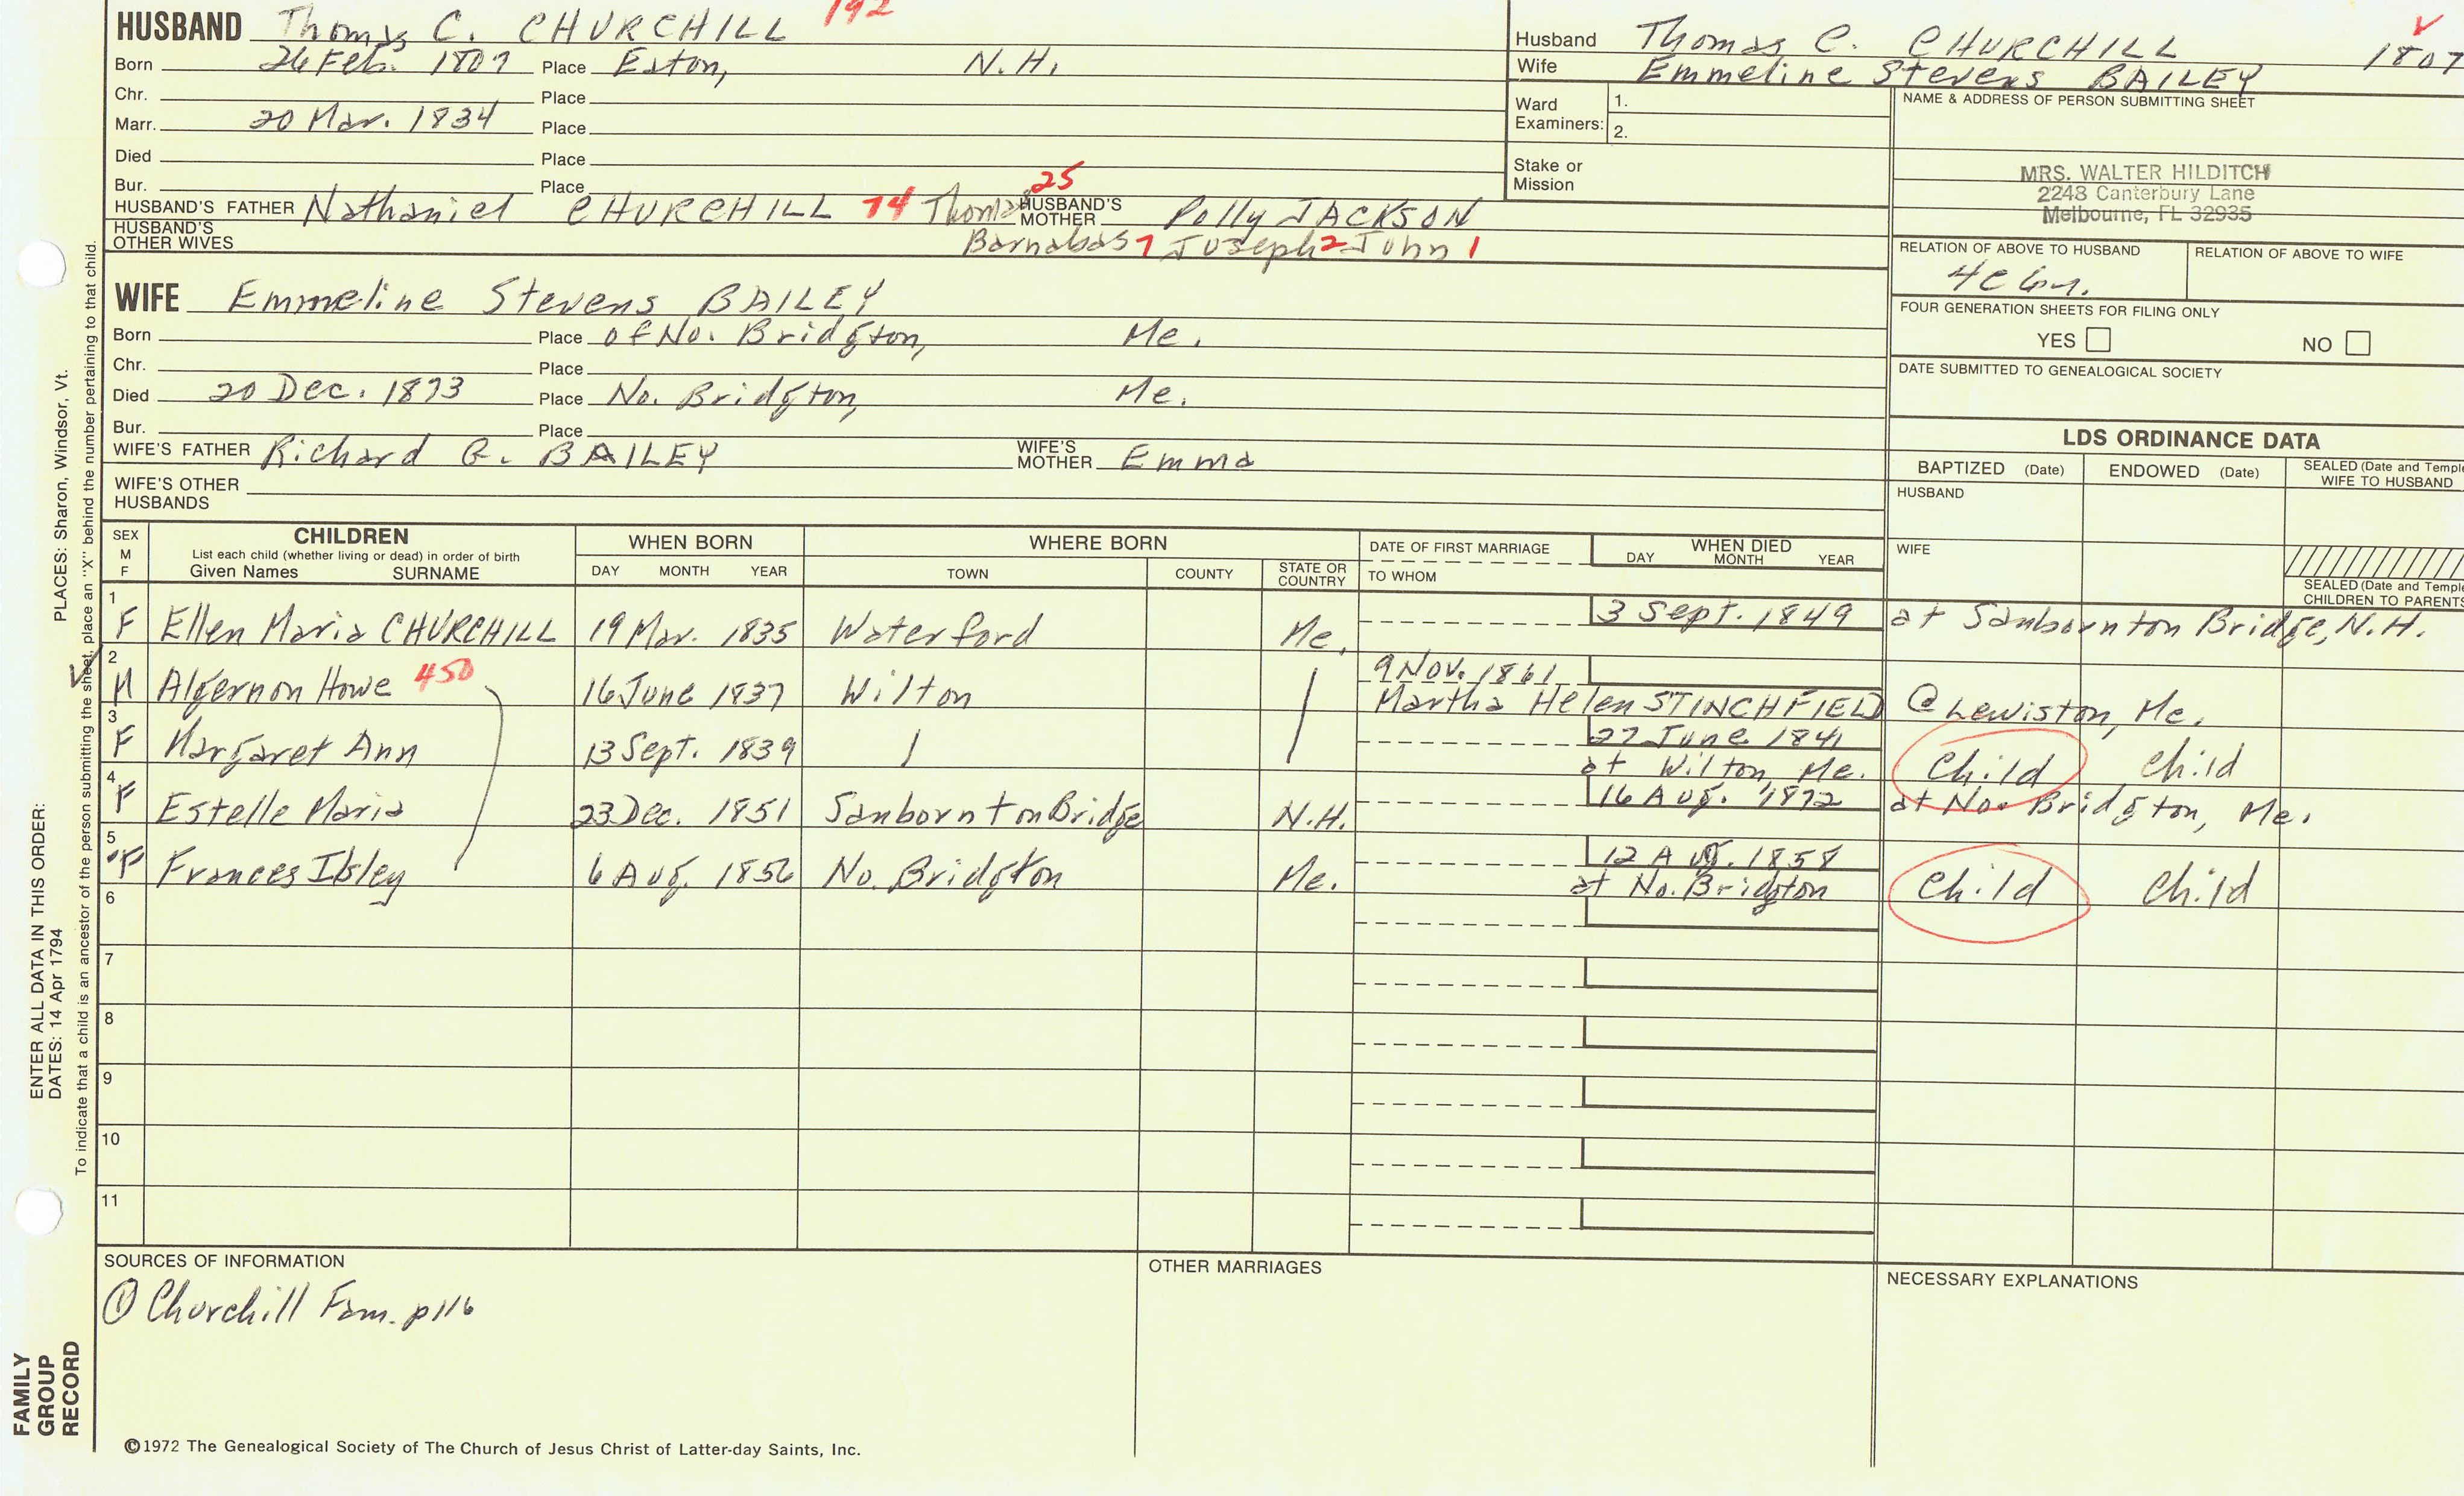 192
HUSBAND Thomas C. CHURCHILL
Born 26 Feb. 1807 Place Eaton, N.H.
Chr. Place
Marr. 20 Mar. 1834 Place
Died Place
Bur. Place
25
HUSBAND'S FATHER Nathaniel CHURCHILL 74 Thomas HUSBAND'S MOTHER Polly JACKSON
HUSBAND'S OTHER WIVES Barnabas 7 Joseph 2 John 1
WIFE Emmeline Stevens BAILEY
Born Place of No. Bridgton, Me.
Chr. Place
Died 20 Dec. 1893 Place No. Bridgton, Me.
Bur. Place
WIFE'S FATHER Richard G. BAILEY WIFE'S MOTHER Emma
WIFE'S OTHER HUSBANDS
Husband Thomas C. CHURCHILL 1807
Wife Emmeline Stevens BAILEY
Ward Examiners: 1.
2.
Stake or Mission
NAME & ADDRESS OF PERSON SUBMITTING SHEET
MRS. WALTER HILDITCH
2248 Canterbury Lane
Melbourne, FL 32935
RELATION OF ABOVE TO HUSBAND RELATION OF ABOVE TO WIFE
FOUR GENERATION SHEETS FOR FILING ONLY
YES NO
DATE SUBMITTED TO GENEALOGICAL SOCIETY
LDS ORDINANCE DATA
BAPTIZED (Date) ENDOWED (Date) SEALED (Date and Temple WIFE TO HUSBAND
HUSBAND
WIFE
SEALED (Date and Temple CHILDREN TO PARENTS
SEX M F CHILDREN WHEN BORN WHERE BORN DATE OF FIRST MARRIAGE WHEN DIED
List each child (whether living or dead) in order of birth
Given Names SURNAME DAY MONTH YEAR TOWN COUNTY STATE OR COUNTRY TO WHOM DAY MONTH YEAR
1 F Ellen Maria CHURCHILL 19 Mar. 1835 Waterford Me. 3 Sept. 1849 at Sanbornton Bridge, N.H.
2 M Algernon Howe 450 16 June 1837 Wilton 9 Nov. 1861 Martha Helen STINCHFIELD @ Lewiston, Me.
3 F Margaret Ann 13 Sept. 1839 27 June 1841 at Wilton, Me. Child Child
4 F Estelle Maria 23 Dec. 1851 Sanbornton Bridge N.H. 16 Aug. 1872 at No. Bridgton, Me.
5 F Frances Ilsley 6 Aug. 1856 No. Bridgton Me. 12 Aug. 1858 at No. Bridgton Child Child
6
7
8
9
10
11
SOURCES OF INFORMATION
① Churchill Fam. p116
OTHER MARRIAGES
NECESSARY EXPLANATIONS
©1972 The Genealogical Society of The Church of Jesus Christ of Latter-day Saints, Inc.
FAMILY GROUP RECORD
ENTER ALL DATA IN THIS ORDER:
DATES: 14 Apr 1794 PLACES: Sharon, Windsor, Vt.
To indicate that a child is an ancestor of the person submitting the sheet, place an "X" behind the number pertaining to that child.